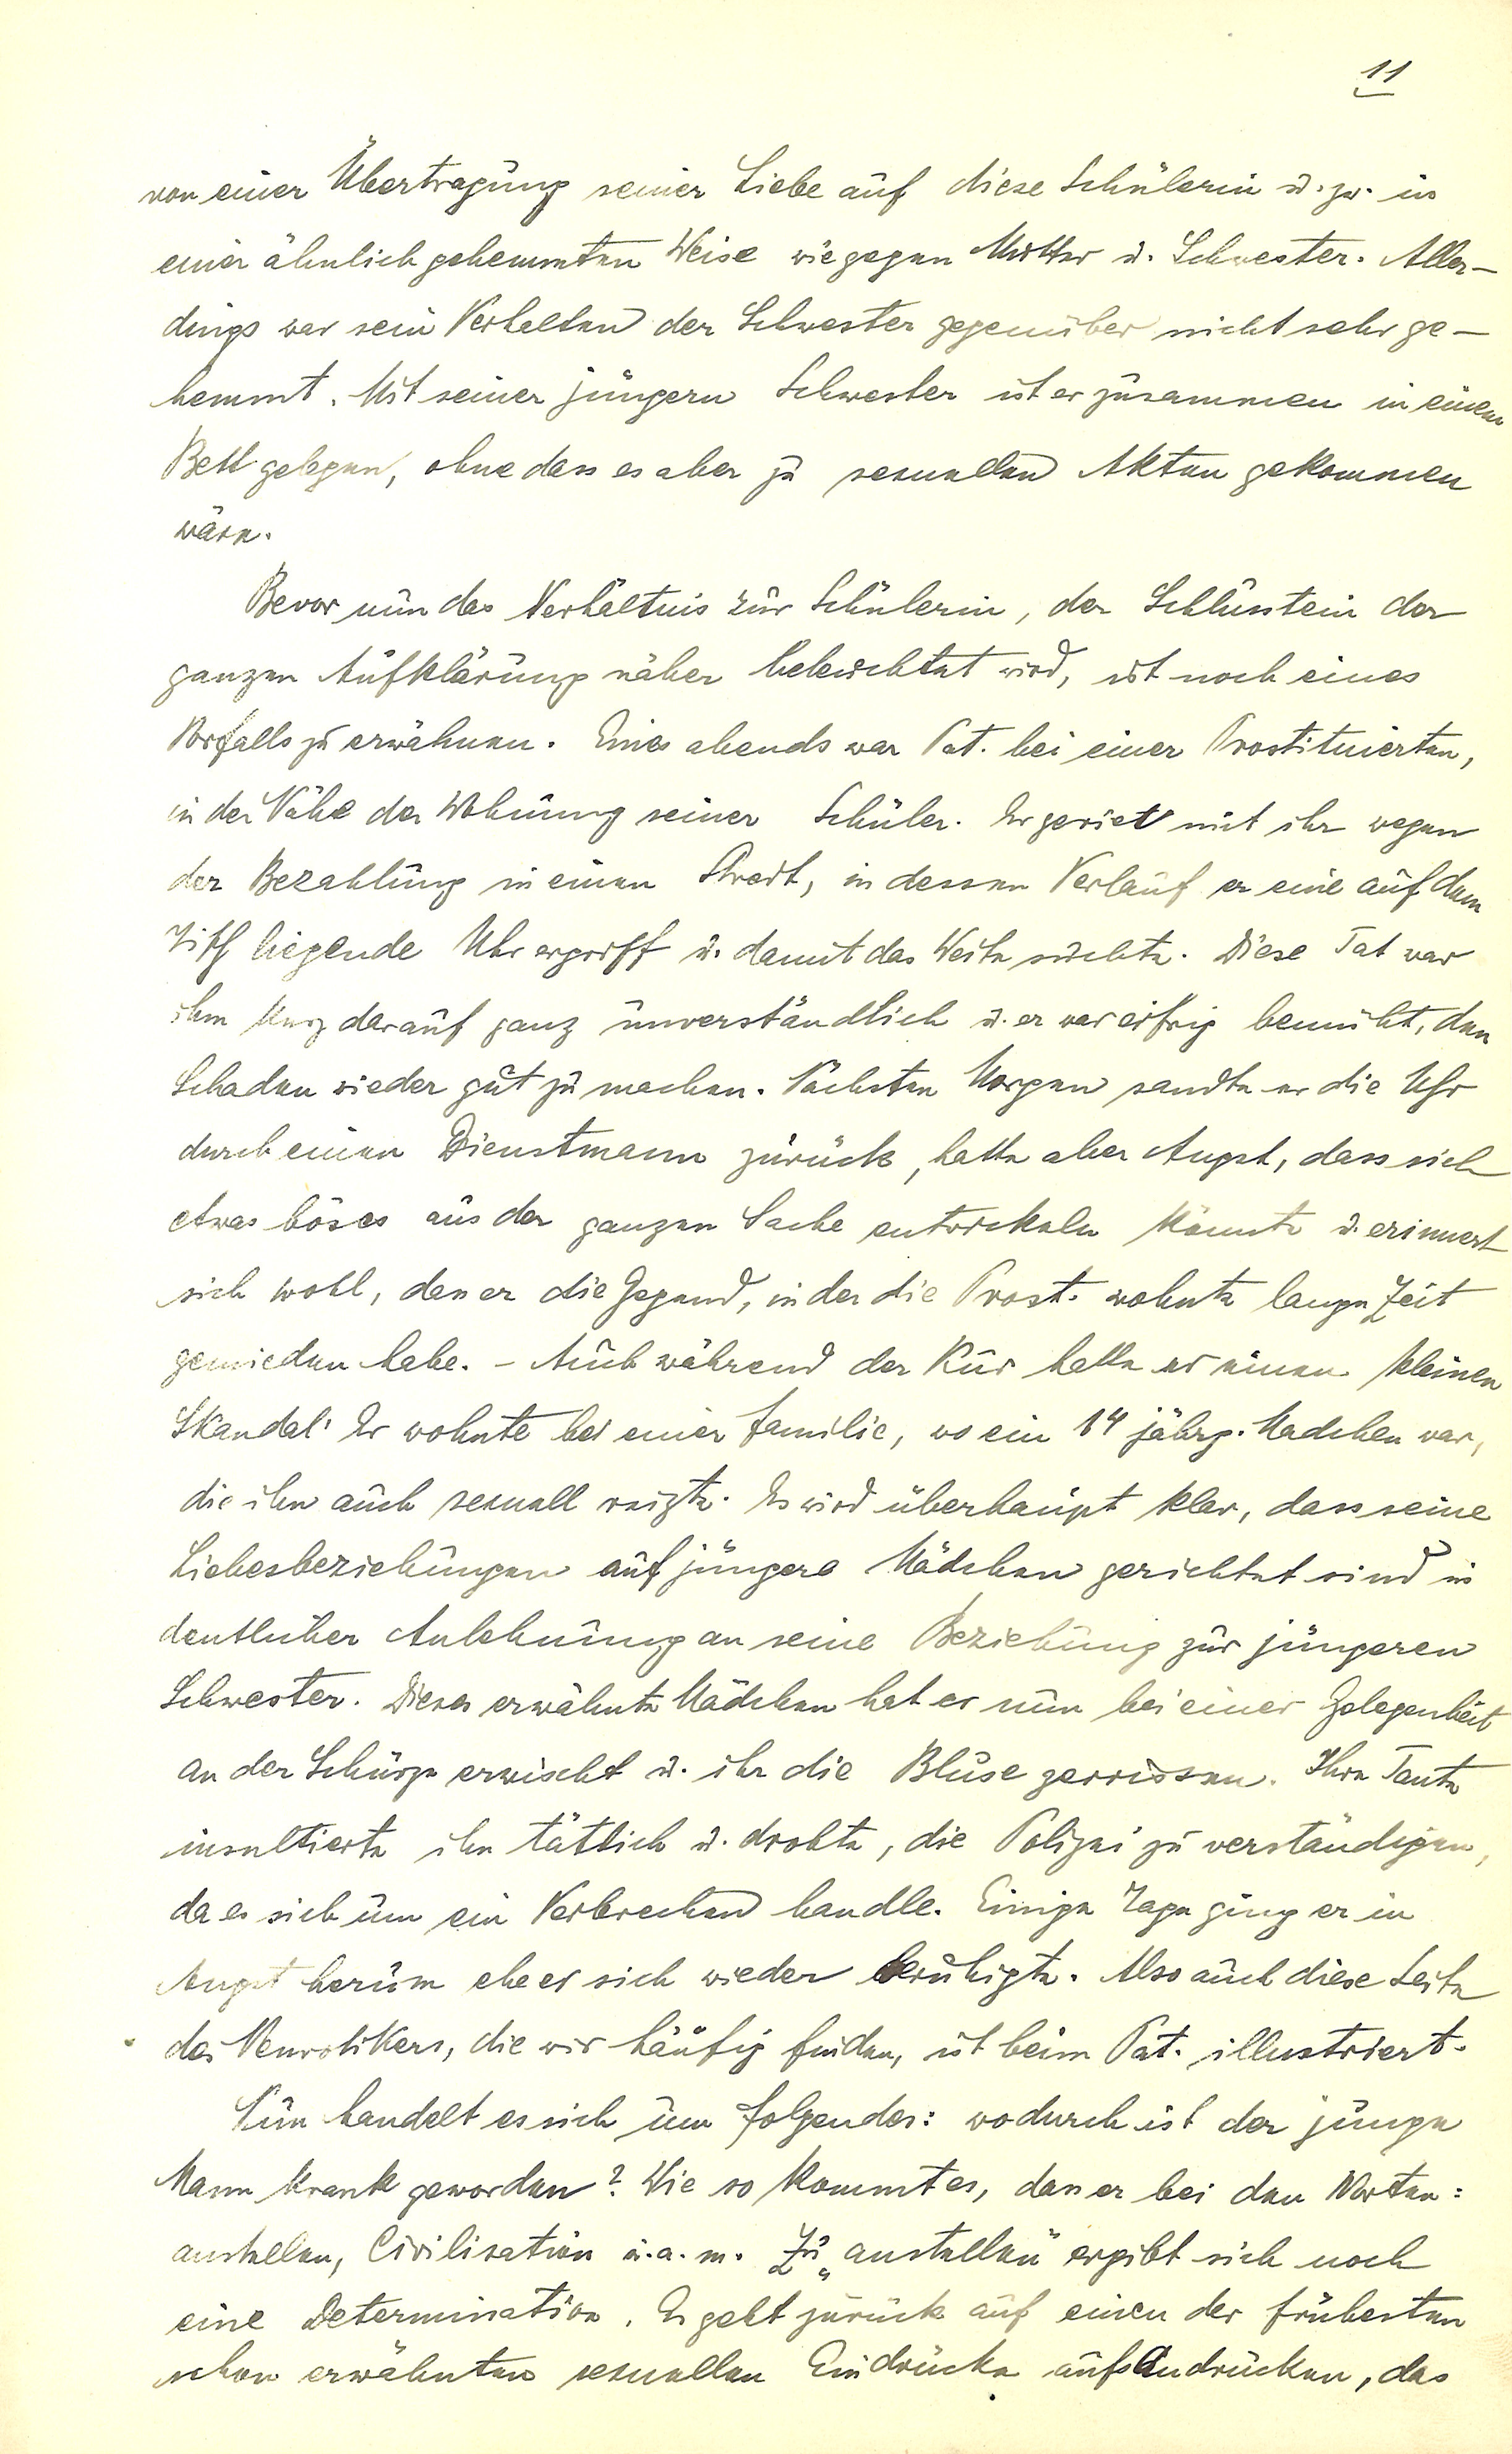 11
von einer Übertragung seiner Liebe auf diese Schülerin u. zw. in
einer ähnlich gehemmten Weise wie gegen Mutter u. Schwester. Aller-
dings war sein Verhalten der Schwester gegenüber nicht sehr ge-
hemmt. Mit seiner jüngern Schwester ist er zusammen in einem
Bett gelegen, ohne dass es aber zu sexuellen Akten gekommen
wäre.
Bevor nun das Verhältnis zur Schülerin, der Schlusstein der
ganzen Aufklärung näher beleuchtet wird, ist noch eines
Vorfalls zu erwähnen. Eines abends war Pat. bei einer Prostituierten,
in der Nähe der Wohnung seiner Schüler. Er geriet mit ihr wegen
der Bezahlung in einen Streit, in dessen Verlauf er eine auf dem
Tisch liegende Uhr ergriff u. damit das Weite suchte. Diese Tat war
ihm kurz darauf ganz unverständlich u. er war eifrig bemüht, den
Schaden wieder gut zu machen. Nächsten Morgen sandte er die Uhr
durch einen Dienstmann zurück, hatte aber Angst, dass sich
etwas böses aus der ganzen Sache entwickeln könnte u. erinnert
sich wohl, dass er die Gegend, in der die Prost. wohnte lange Zeit
gemieden habe. - Auch während der Kur hatte er einen kleinen
Skandal: Er wohnte bei einer Familie, wo ein 14 jährg. Mädchen war,
die ihn auch sexuell reizte. Es wird überhaupt klar, dass seine
Liebesbeziehungen auf jüngere Mädchen gerichtet sind in
deutlicher Anlehnung an seine Beziehung zur jüngeren
Schwester. Dieses erwähnte Mädchen hat er nun bei einer Gelegenheit
an der Schürze erwischt u. ihr die Bluse zerrissen. Ihre Tante
insultierte ihn tätlich u. drohte, die Polizei zu verständigen,
da es sich um ein Verbrechen handle. Einige Tage ging er in
Angst herum ehe er sich wieder beruhigte. Also auch diese Seite
des Neurotikers, die wir häufig finden, ist beim Pat. illustriert.
Nun handelt es sich um folgendes: wodurch ist der junge
Mann krank geworden? Wie so kommt es, dass er bei den Worten:
anstellen, Civilisation u. a. m. Zu „anstellen" ergibt sich noch
eine Determination. Es geht zurück auf einen der frühesten
schon erwähnten sexuellen Eindrücke aufs Andrücken, das